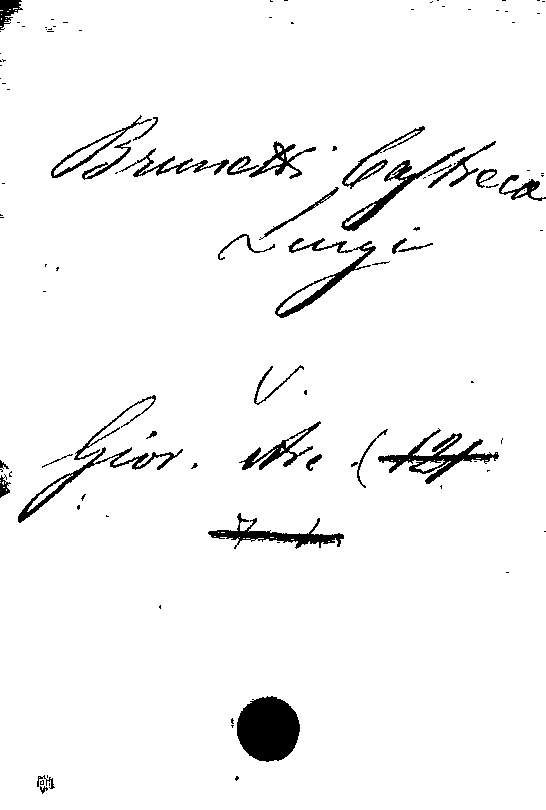 Brunetti Castreca
Luigi
V.
Gior. Arc. (12)